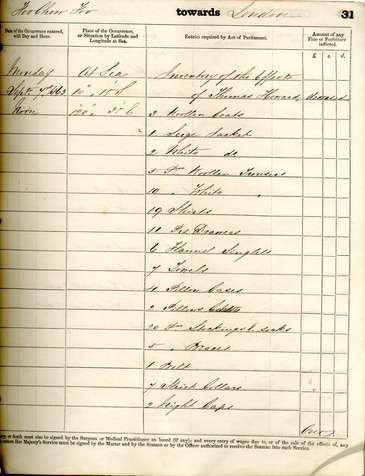 Foo Chow Foo towards London 31
Date of the Occurrence entered, with Day and Hour.
Place of the Occurrence, or Situation by Latitude and Longitude at Sea.
Entries required by Act of Parliament.
Amount of any Fine or Forfeiture inflicted.
£ s. d.
Monday At Sea Inventory of the Effects
Sept. 7th 1863 of Thomas Howard, deceased
Noon 3 Woollen Coats
1 Serge Jacket
2 White do
5 Prs Woollen Trousers
10 " White "
19 Shirts
11 Prs Drawers
6 Flannel Singlets
7 Towels
4 Pillow Cases
2 Pillows
20 Prs Stockings & socks
5 " Braces
1 Belt
7 Shirt Collars
2 Night Caps
Over
or death must also be signed by the Surgeon or Medical Practitioner on board (if any); and every entry of wages due to, or of the sale of the effects of, any
Her Majesty's Service must be signed by the Master and by the Seaman or by the Officer authorized to receive the Seaman into such Service.